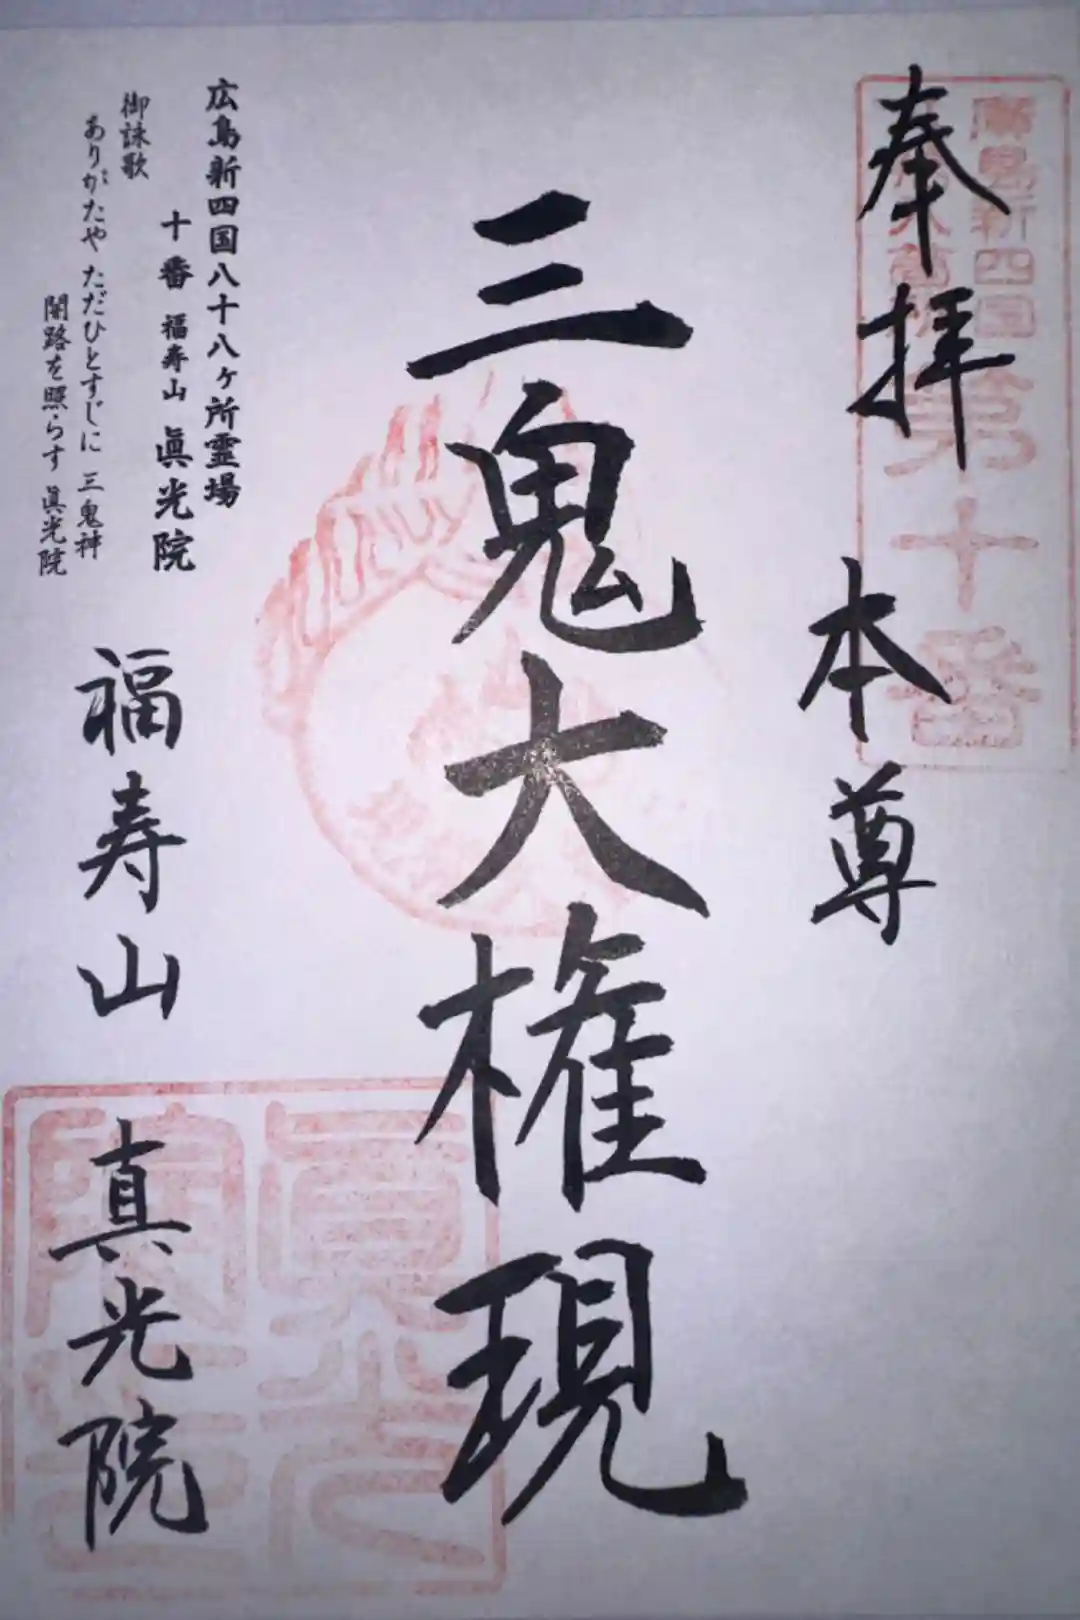 奉拝
本尊
廣島新四国
第十番
三鬼大権現
広島新四国八十八ヶ所霊場
十番 福寿山 眞光院
御詠歌
ありがたや ただひとすじに 三鬼神
闇路を照らす 眞光院
福寿山 真光院
眞光
院